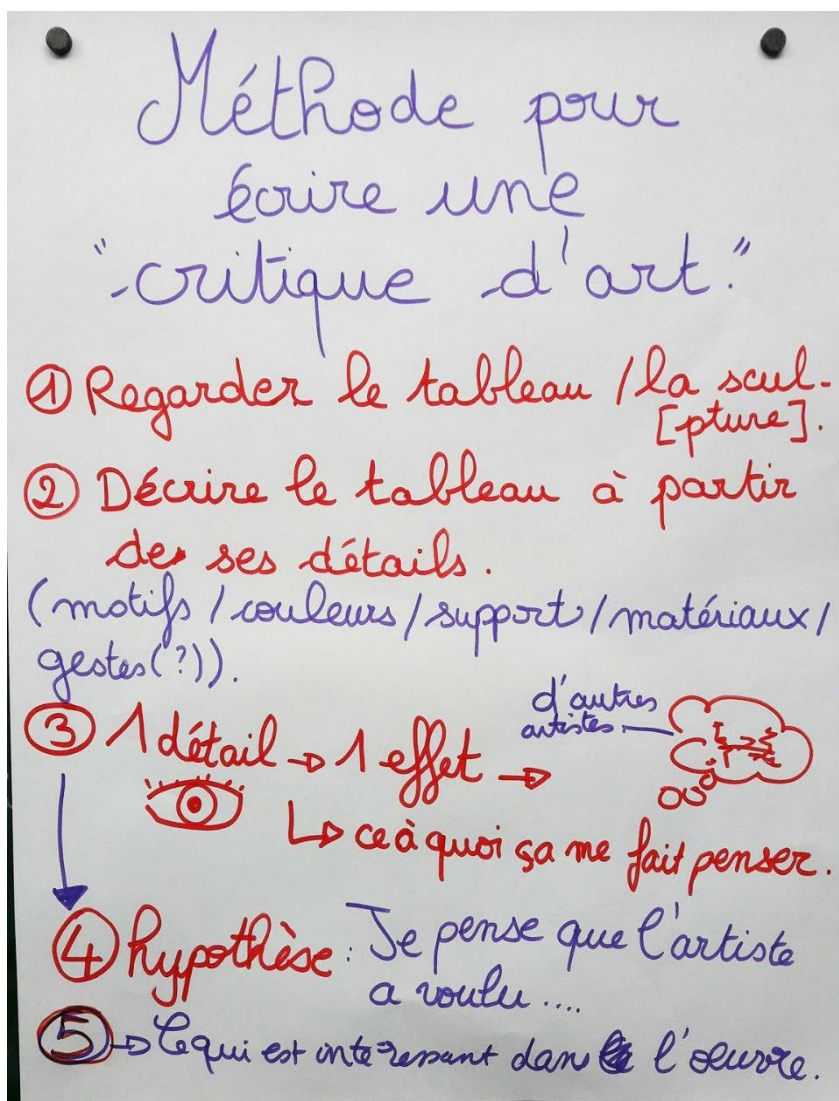 Méthode pour
écrire une
"critique d'art."
① Regarder le tableau / la scul-
[pture].
② Décrire le tableau à partir
de ses détails.
(motifs / couleurs / support / matériaux /
gestes (?)).
③ 1 détail → 1 effet →
d'autres
artistes
↳ ce à quoi ça me fait penser.
④ hypothèse : Je pense que l'artiste
a voulu....
⑤ → Ce qui est intéressant dans l'oeuvre.